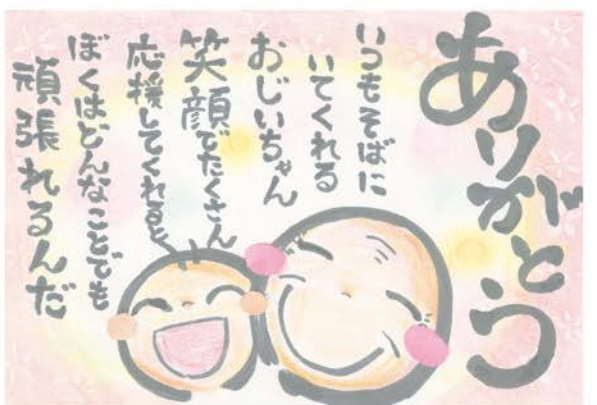 ありがとう
いつもそばに
いてくれる
おじいちゃん
笑顔でたくさん
応援してくれると
ぼくはどんなことでも
頑張れるんだ